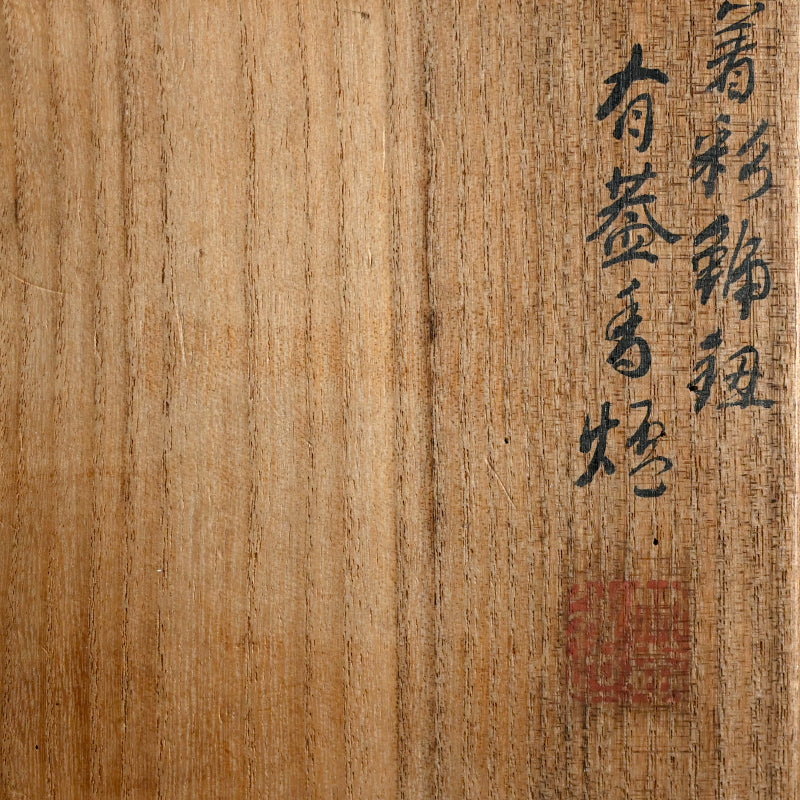 着彩獅鈕
有蓋香炉